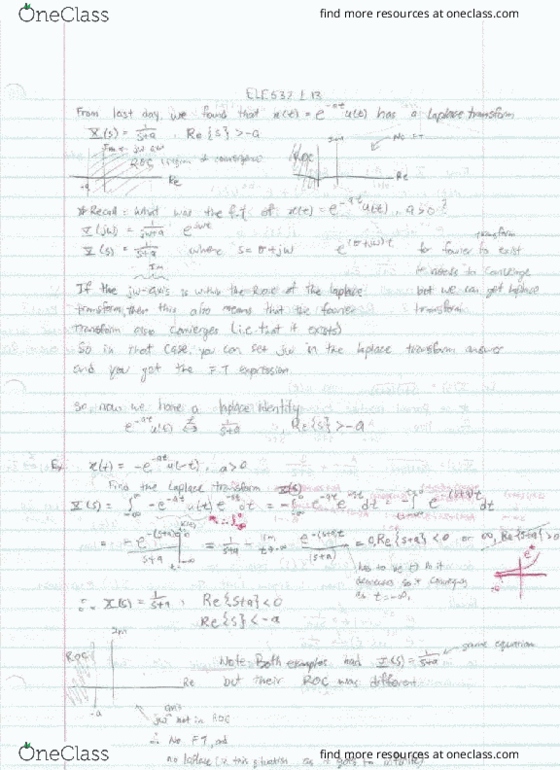 OneClass
find more resources at oneclass.com
ELE532 L13
From last day, we found that x(t) = e^-at u(t) has a laplace transform
X(s) = 1/(s+a) , Re{s} > -a
ROC (region of convergence)
Re
-a
ROC
Re
No FT
* Recall: what was the f.t of x(t) = e^-at u(t), a>0?
X(jw) = 1/(jw+a) e^jwt
X(s) = 1/(s+a) where s = σ+jw e^(σ+jw)t
for fourier transform to exist
it needs to converge
but we can get laplace
transform
Im
If the jw-axis is within the ROC of the laplace
transform, then this also means that the fourier
transform also converges (i.e. that it exists)
So in that case, you can set jw in the laplace transform answer
and you get the F.T expression.
so now we have a laplace identity
e^-at u(t) ↔ 1/(s+a) , Re{s} > -a
Ex x(t) = -e^-at u(-t) , a>0
Find the laplace transform X(s)
= 0, Re{s+a} < 0 or ∞, Re{s+a} > 0
has to be
decreases so it converges
as t=-∞,
∴ X(s) = 1/(s+a) , Re{s+a} < 0
Re{s} < -a
Im
ROC
Re
-a
Note: Both examples had X(s) = 1/(s+a) same equation
but their ROC was different
jw not in ROC
∴ No FT, and
no laplace
OneClass
find more resources at oneclass.com